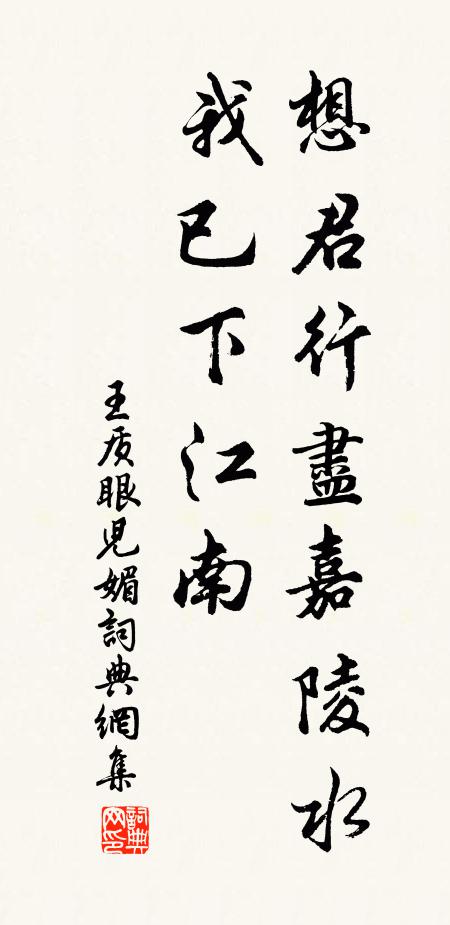 想君行盡嘉陵水
我已下江南
王质眼児媚詞典網集
詞典
网印